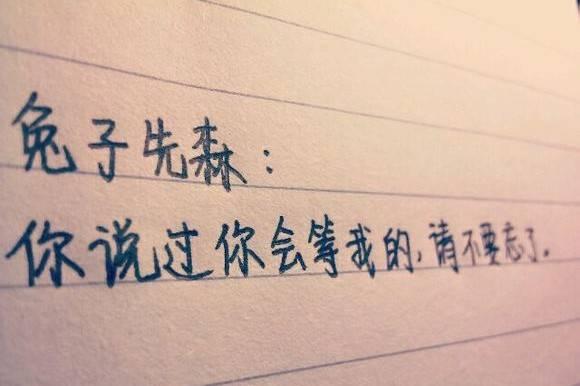 兔子先森:
你说过你会等我的,请不要忘了。